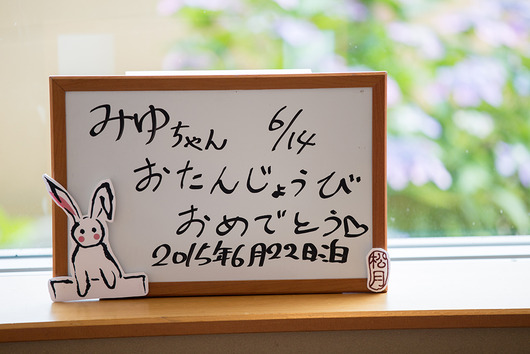 みゆちゃん 6/14
おたんじょうび
おめでとう♡
2015年6月22日泊
松月